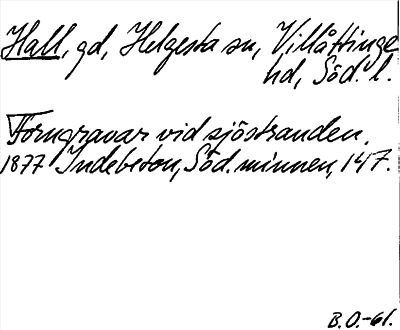 Hall, gd, Helgesta sn, Villåttinge
hd, Söd. l.
Forngravar vid sjöstranden.
1877 Indebetou, Söd. minnen, 147.
B.O.-61.